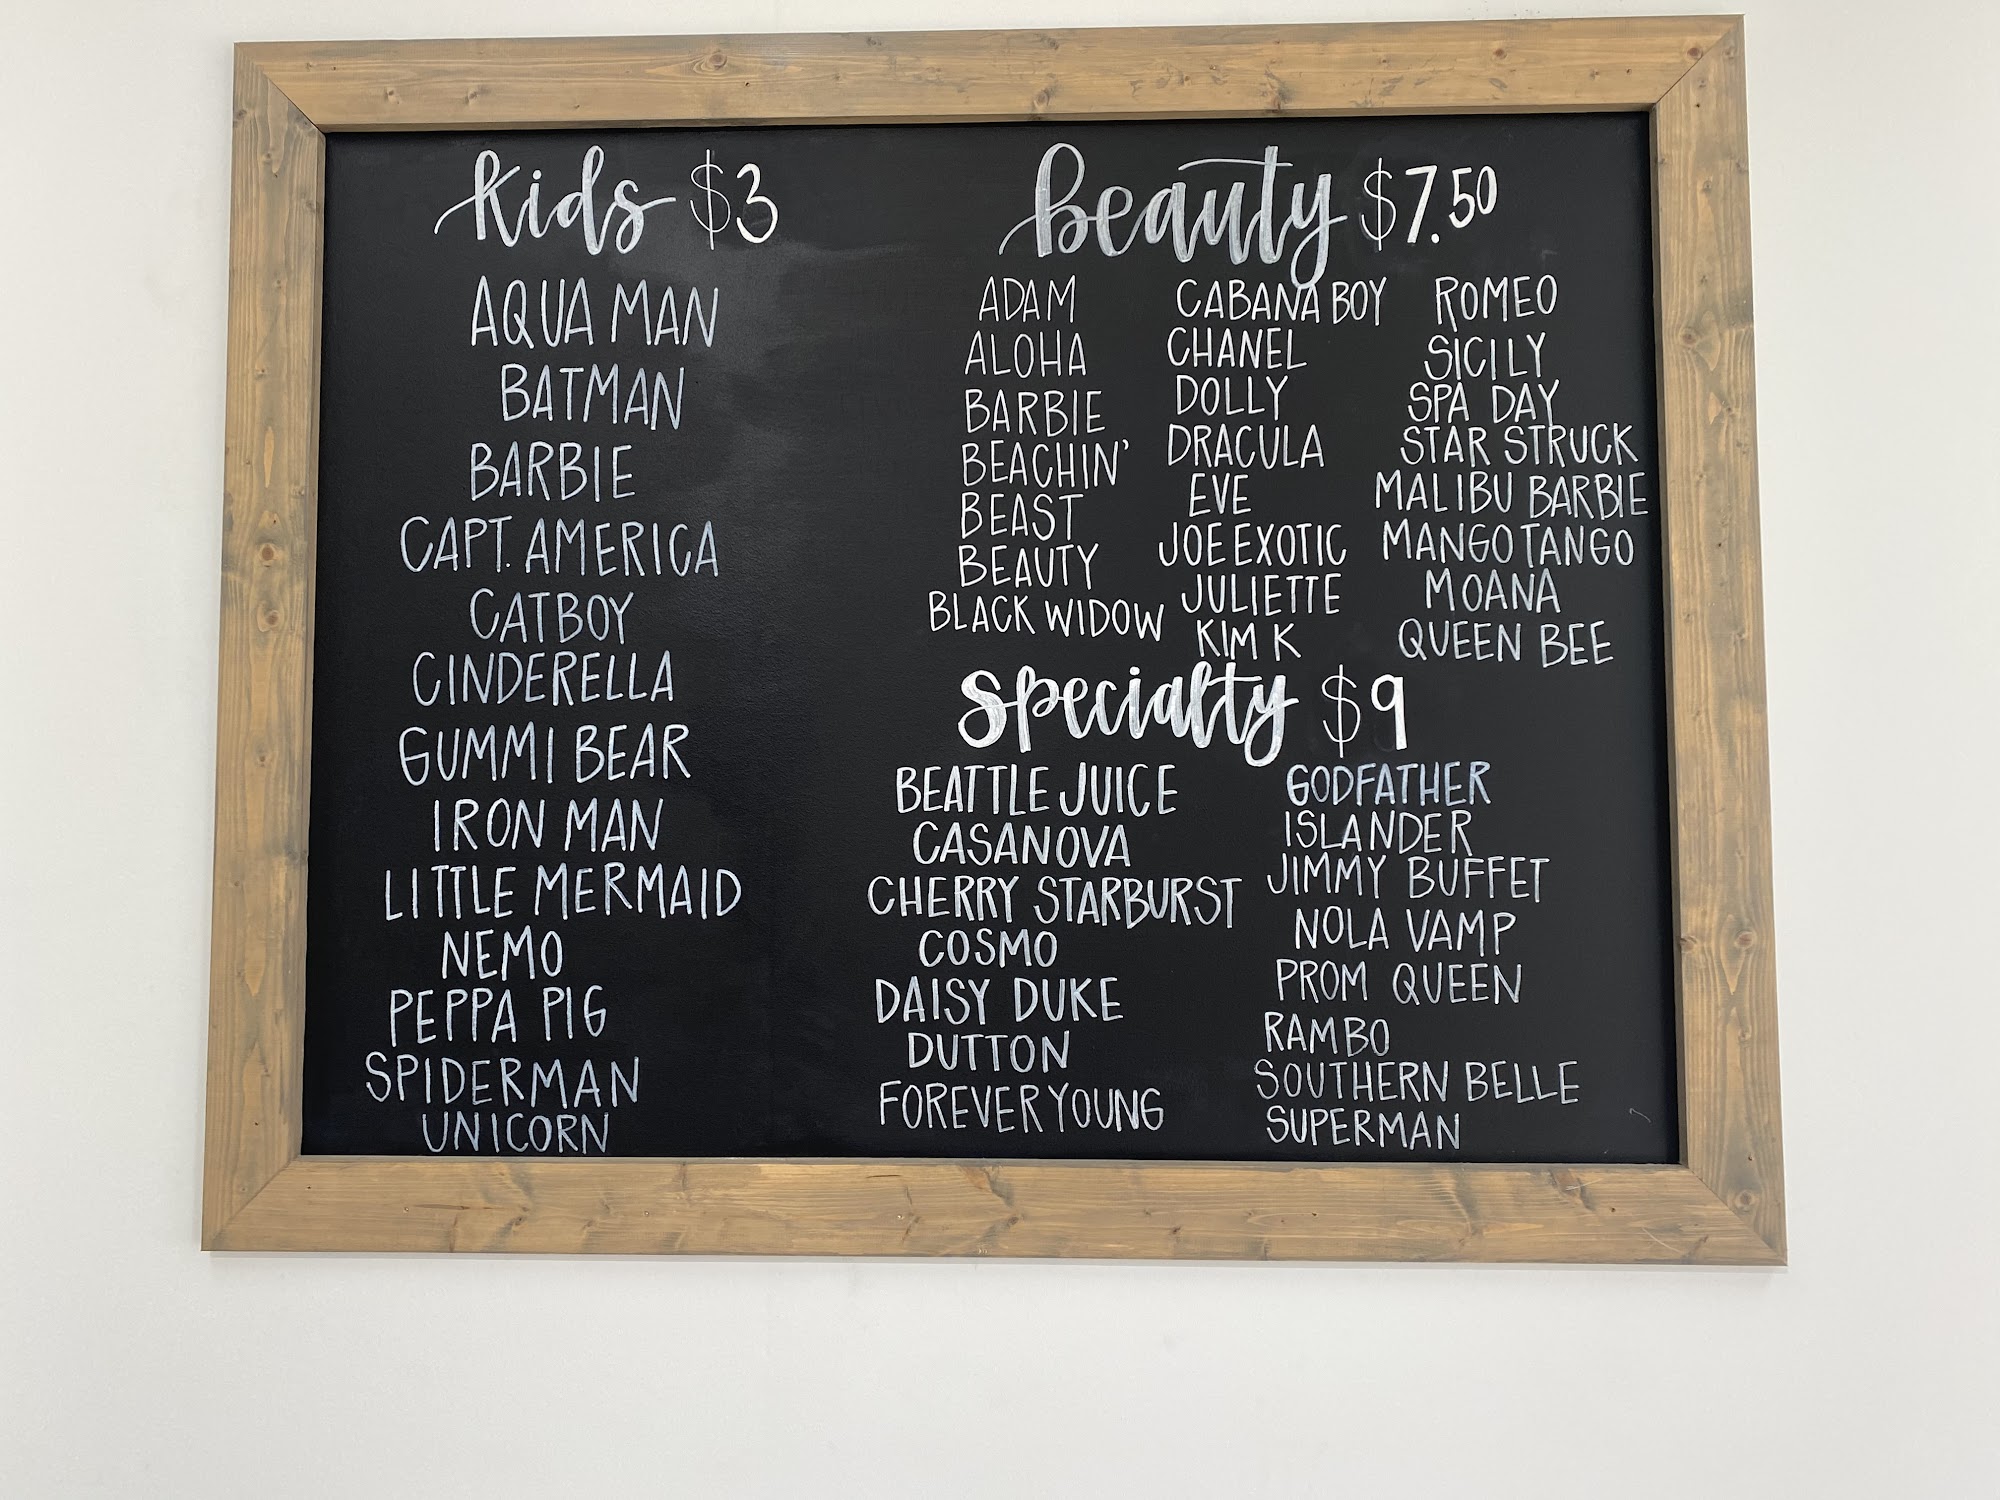 kids $3
AQUA MAN
BATMAN
BARBIE
CAPT. AMERICA
CATBOY
CINDERELLA
GUMMI BEAR
IRON MAN
LITTLE MERMAID
NEMO
PEPPA PIG
SPIDERMAN
UNICORN
beauty $7.50
ADAM
ALOHA
BARBIE
BEACHIN'
BEAST
BEAUTY
BLACK WIDOW
CABANA BOY
CHANEL
DOLLY
DRACULA
EVE
JOE EXOTIC
JULIETTE
KIM K
ROMEO
SICILY
SPA DAY
STAR STRUCK
MALIBU BARBIE
MANGO TANGO
MOANA
QUEEN BEE
specialty $9
BEATTLE JUICE
CASANOVA
CHERRY STARBURST
COSMO
DAISY DUKE
DUTTON
FOREVER YOUNG
GODFATHER
ISLANDER
JIMMY BUFFET
NOLA VAMP
PROM QUEEN
RAMBO
SOUTHERN BELLE
SUPERMAN